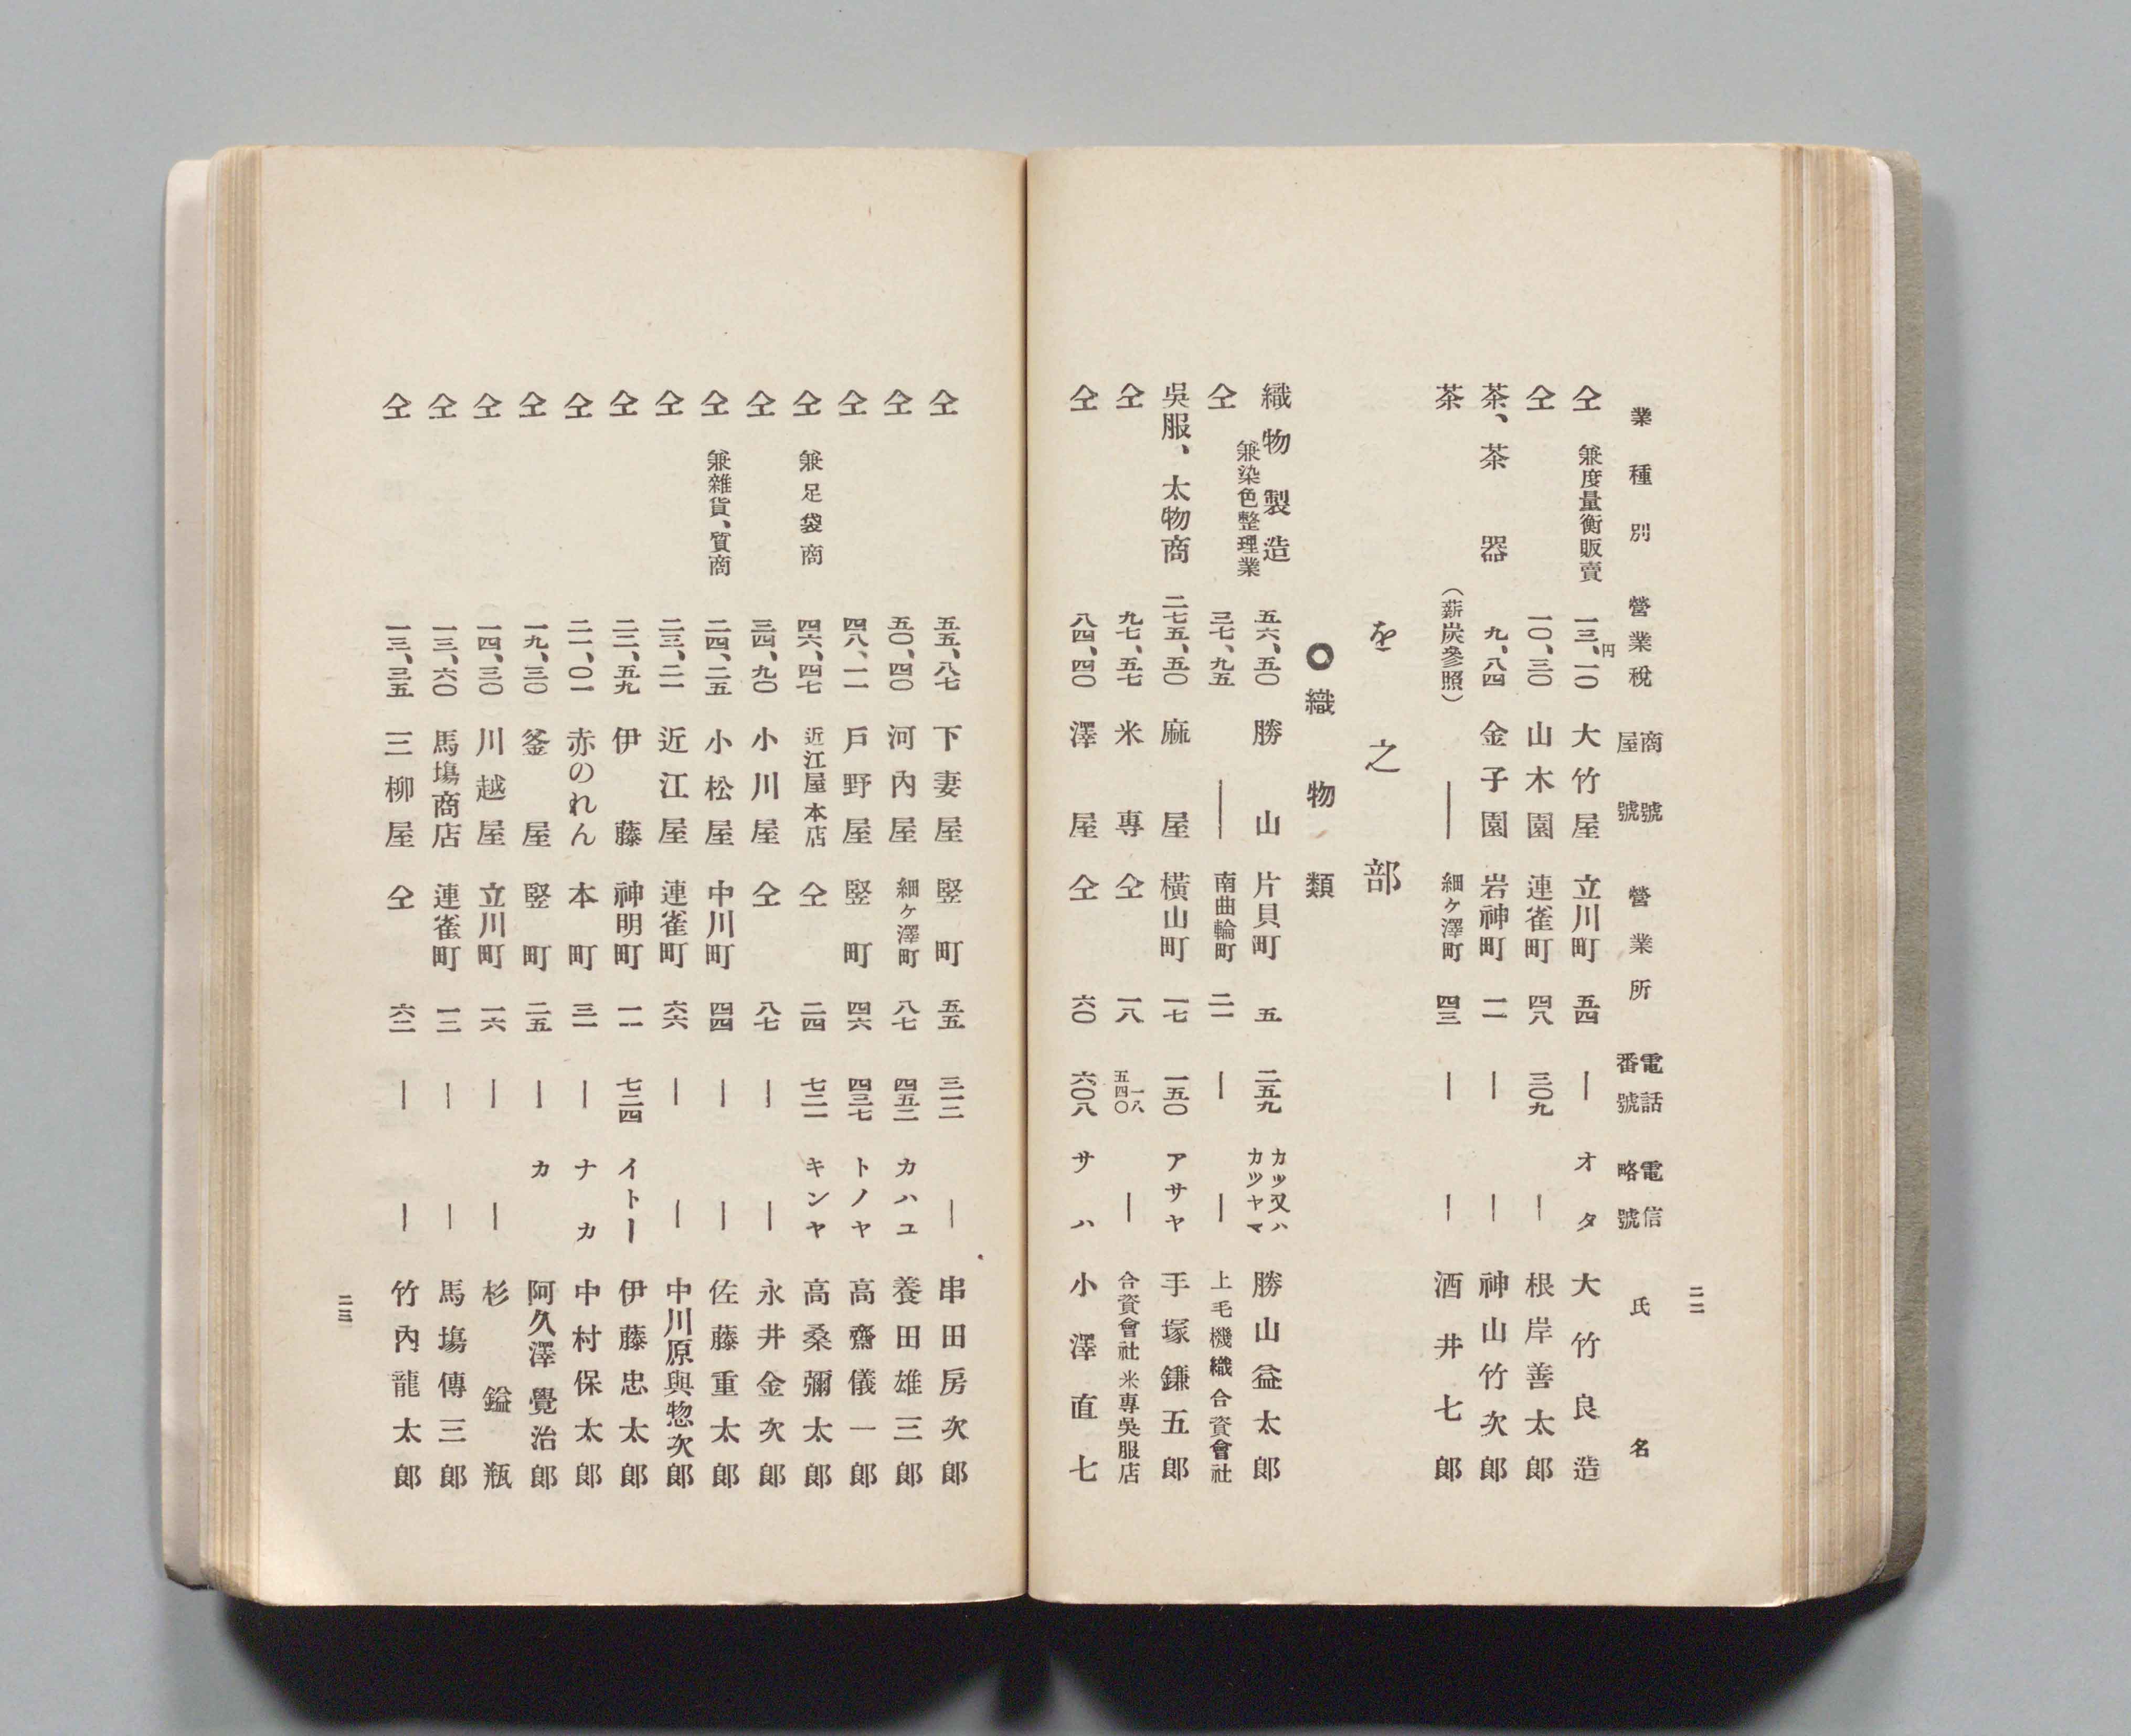 業種別 營業稅 商號屋號 營業所 電話番號 電信略號 氏名
仝 兼度量衡販賣 一三、一〇円 大竹屋 立川町 五四 ― オタ 大竹良造
仝 一〇、三〇 山木園 連雀町 四八 三〇九 ― 根岸善太郎
茶、茶器 九、八四 金子園 岩神町 一一 ― ― 神山竹次郎
茶 (薪炭參照) ― 細ヶ澤町 四三 ― ― 酒井七郎
を之部
○織物類
織物製造 五六、五〇 勝山 片貝町 五 二五九 カツ又ハカツヤマ 勝山益太郎
仝 兼染色整理業 三七、九五 ― 南曲輪町 二一 ― ― 上毛機織合資會社
吳服、太物商 二七五、五〇 麻屋 橫山町 一七 一五〇 アサヤ 手塚鎌五郎
仝 九七、五七 米專 仝 一八 一八 五四〇 ― 合資會社米專吳服店
仝 八四、四〇 澤屋 仝 六〇 六〇八 サハ 小澤直七
二二
仝 五五、八七 下妻屋 竪町 五五 三一二 ― 串田房次郎
仝 五〇、四〇 河內屋 細ヶ澤町 八七 四五二 カハユ 養田雄三郎
仝 四八、一一 戶野屋 竪町 四六 四三七 トノヤ 高齋儀一郎
仝 兼足袋商 四六、四七 近江屋本店 仝 二四 七二一 キンヤ 高桑彌太郎
仝 三四、九〇 小川屋 仝 八七 ― ― 永井金次郎
仝 兼雜貨、質商 二四、二五 小松屋 中川町 四四 ― ― 佐藤重太郎
仝 二三、二一 近江屋 連雀町 六六 ― ― 中川原與惣次郎
仝 二二、五九 伊藤 神明町 一一 七二四 イトー 伊藤忠太郎
仝 二一、〇一 赤のれん 本町 三一 ― ナカ 中村保太郎
仝 一九、三〇 釜屋 竪町 二五 ― カ 阿久澤覺治郎
仝 一四、三〇 川越屋 立川町 一六 ― ― 杉鎰瓶
仝 一三、六〇 馬塲商店 連雀町 一二 ― ― 馬塲傳三郎
仝 一三、三五 三柳屋 仝 六二 ― ― 竹內龍太郎
二三